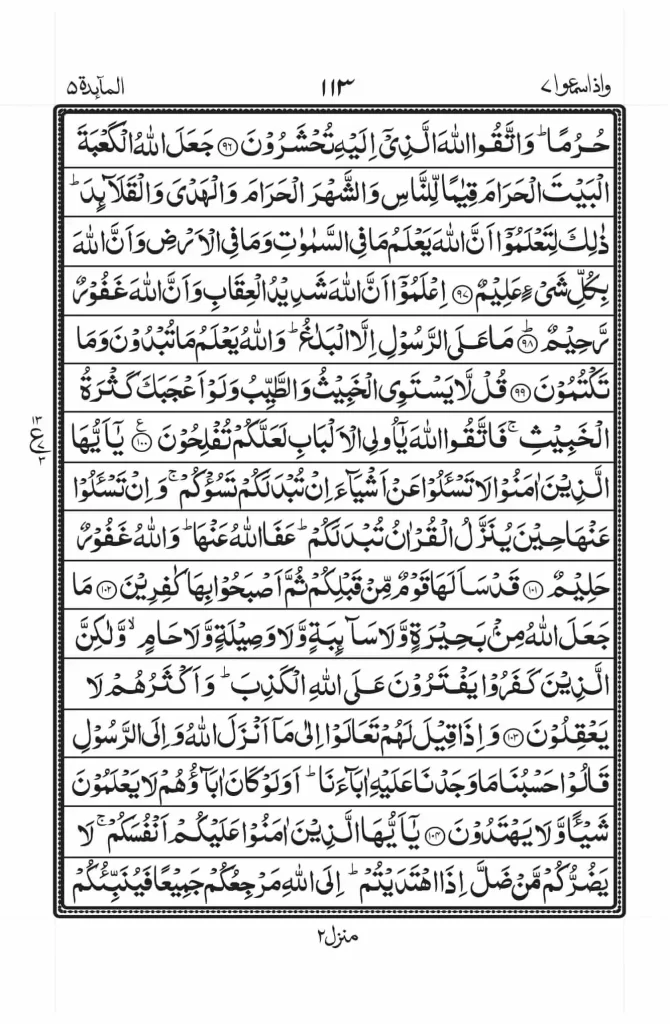 واذاسمعوا ٧ ١١٣ المآىِٕدة ٥
حُرُمًا ؕ وَاتَّقُوا اللّٰهَ الَّذِیْۤ اِلَیْهِ تُحْشَرُوْنَ ﴿۹۶﴾ جَعَلَ اللّٰهُ الْكَعْبَةَ
الْبَیْتَ الْحَرَامَ قِیٰمًا لِّلنَّاسِ وَالشَّهْرَ الْحَرَامَ وَالْهَدْیَ وَالْقَلَآىِٕدَ ؕ
ذٰلِكَ لِتَعْلَمُوْۤا اَنَّ اللّٰهَ یَعْلَمُ مَا فِی السَّمٰوٰتِ وَمَا فِی الْاَرْضِ وَاَنَّ اللّٰهَ
بِكُلِّ شَیْءٍ عَلِیْمٌ ﴿۹۷﴾ اِعْلَمُوْۤا اَنَّ اللّٰهَ شَدِیْدُ الْعِقَابِ وَاَنَّ اللّٰهَ غَفُوْرٌ
رَّحِیْمٌ ﴿ؕ۹۸﴾ مَا عَلَی الرَّسُوْلِ اِلَّا الْبَلٰغُ ؕ وَاللّٰهُ یَعْلَمُ مَا تُبْدُوْنَ وَمَا
تَكْتُمُوْنَ ﴿۹۹﴾ قُلْ لَّا یَسْتَوِی الْخَبِیْثُ وَالطَّیِّبُ وَلَوْ اَعْجَبَكَ كَثْرَةُ
الْخَبِیْثِ ۚ فَاتَّقُوا اللّٰهَ یٰۤاُولِی الْاَلْبَابِ لَعَلَّكُمْ تُفْلِحُوْنَ ﴿۱۰۰﴾ ع یٰۤاَیُّهَا
١٣ ع ٧ ٣
الَّذِیْنَ اٰمَنُوْا لَا تَسْـَٔلُوْا عَنْ اَشْیَآءَ اِنْ تُبْدَ لَكُمْ تَسُؤْكُمْ ۚ وَاِنْ تَسْـَٔلُوْا
عَنْهَا حِیْنَ یُنَزَّلُ الْقُرْاٰنُ تُبْدَ لَكُمْ ؕ عَفَا اللّٰهُ عَنْهَا ؕ وَاللّٰهُ غَفُوْرٌ
حَلِیْمٌ ﴿۱۰۱﴾ قَدْ سَاَلَهَا قَوْمٌ مِّنْ قَبْلِكُمْ ثُمَّ اَصْبَحُوْا بِهَا كٰفِرِیْنَ ﴿۱۰۲﴾ مَا
جَعَلَ اللّٰهُ مِنْۢ بَحِیْرَةٍ وَّلَا سَآىِٕبَةٍ وَّلَا وَصِیْلَةٍ وَّلَا حَامٍ ۙ وَّلٰكِنَّ
الَّذِیْنَ كَفَرُوْا یَفْتَرُوْنَ عَلَی اللّٰهِ الْكَذِبَ ؕ وَاَكْثَرُهُمْ لَا
یَعْقِلُوْنَ ﴿۱۰۳﴾ وَاِذَا قِیْلَ لَهُمْ تَعَالَوْا اِلٰی مَاۤ اَنْزَلَ اللّٰهُ وَاِلَی الرَّسُوْلِ
قَالُوْا حَسْبُنَا مَا وَجَدْنَا عَلَیْهِ اٰبَآءَنَا ؕ اَوَلَوْ كَانَ اٰبَآؤُهُمْ لَا یَعْلَمُوْنَ
شَیْـًٔا وَّلَا یَهْتَدُوْنَ ﴿۱۰۴﴾ یٰۤاَیُّهَا الَّذِیْنَ اٰمَنُوْا عَلَیْكُمْ اَنْفُسَكُمْ ۚ لَا
یَضُرُّكُمْ مَّنْ ضَلَّ اِذَا اهْتَدَیْتُمْ ؕ اِلَی اللّٰهِ مَرْجِعُكُمْ جَمِیْعًا فَیُنَبِّئُكُمْ
منزل ٢